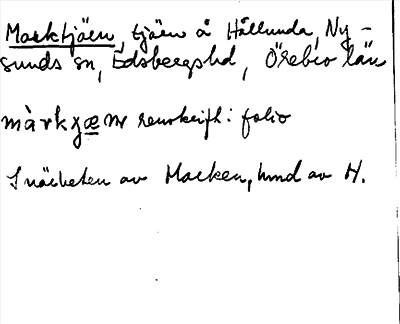 Marktjäen, tjäen å Hållunda, Ny-
sunds sn, Edsbergshd, Örebro län
màrkçæ̲nr renskrift: folio
I närheten av Marken, hmd av H.